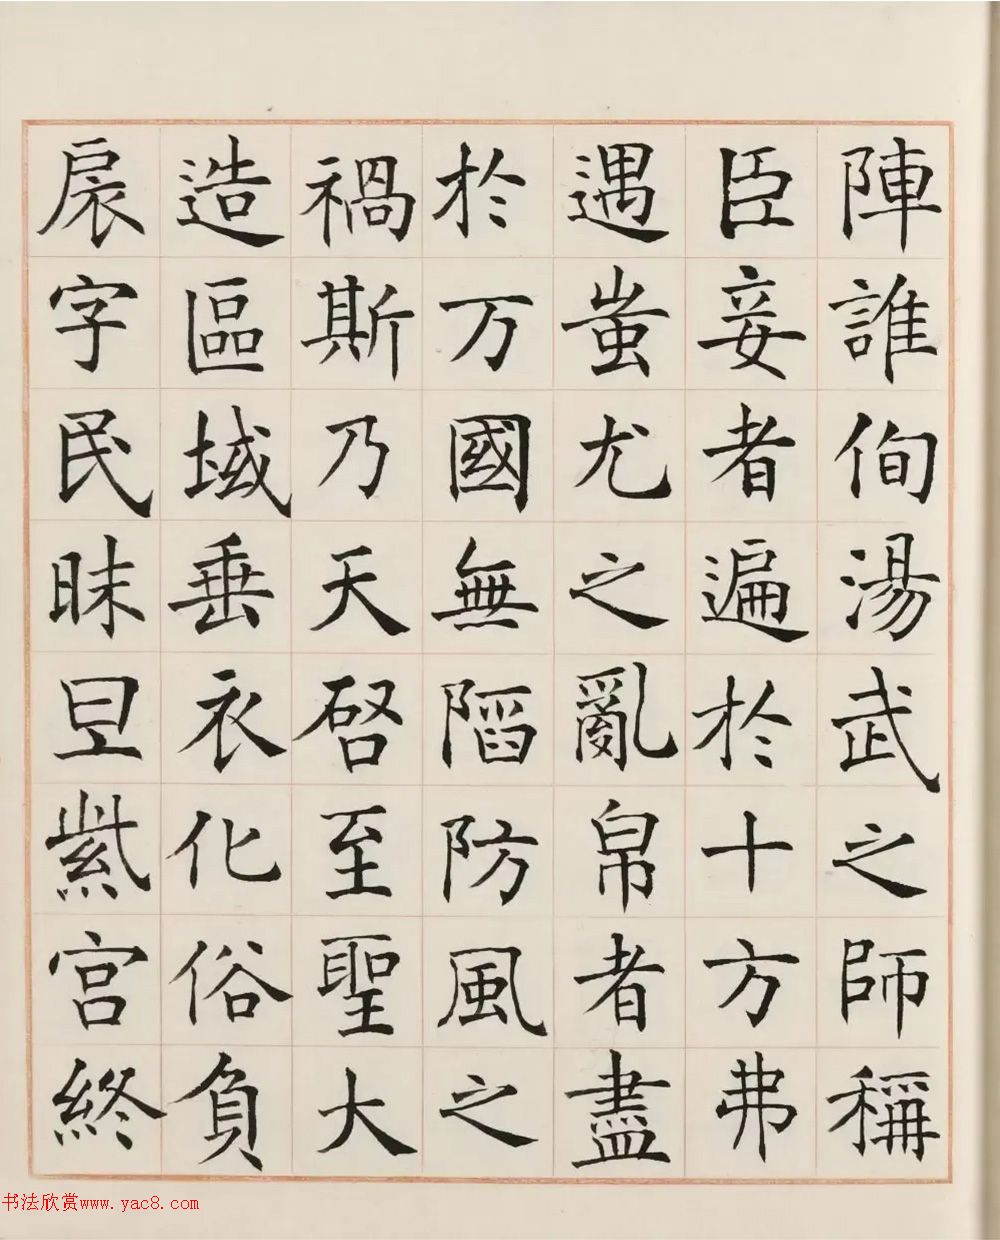 陣誰佝湯武之師稱
臣妾者遍於十方弗
遇蚩尤之亂帛者盡
於万國無陷防風之
禍斯乃天啓至聖大
造區域垂衣化俗負
扆字民昧旦紫宮終
书法欣赏www.yac8.com